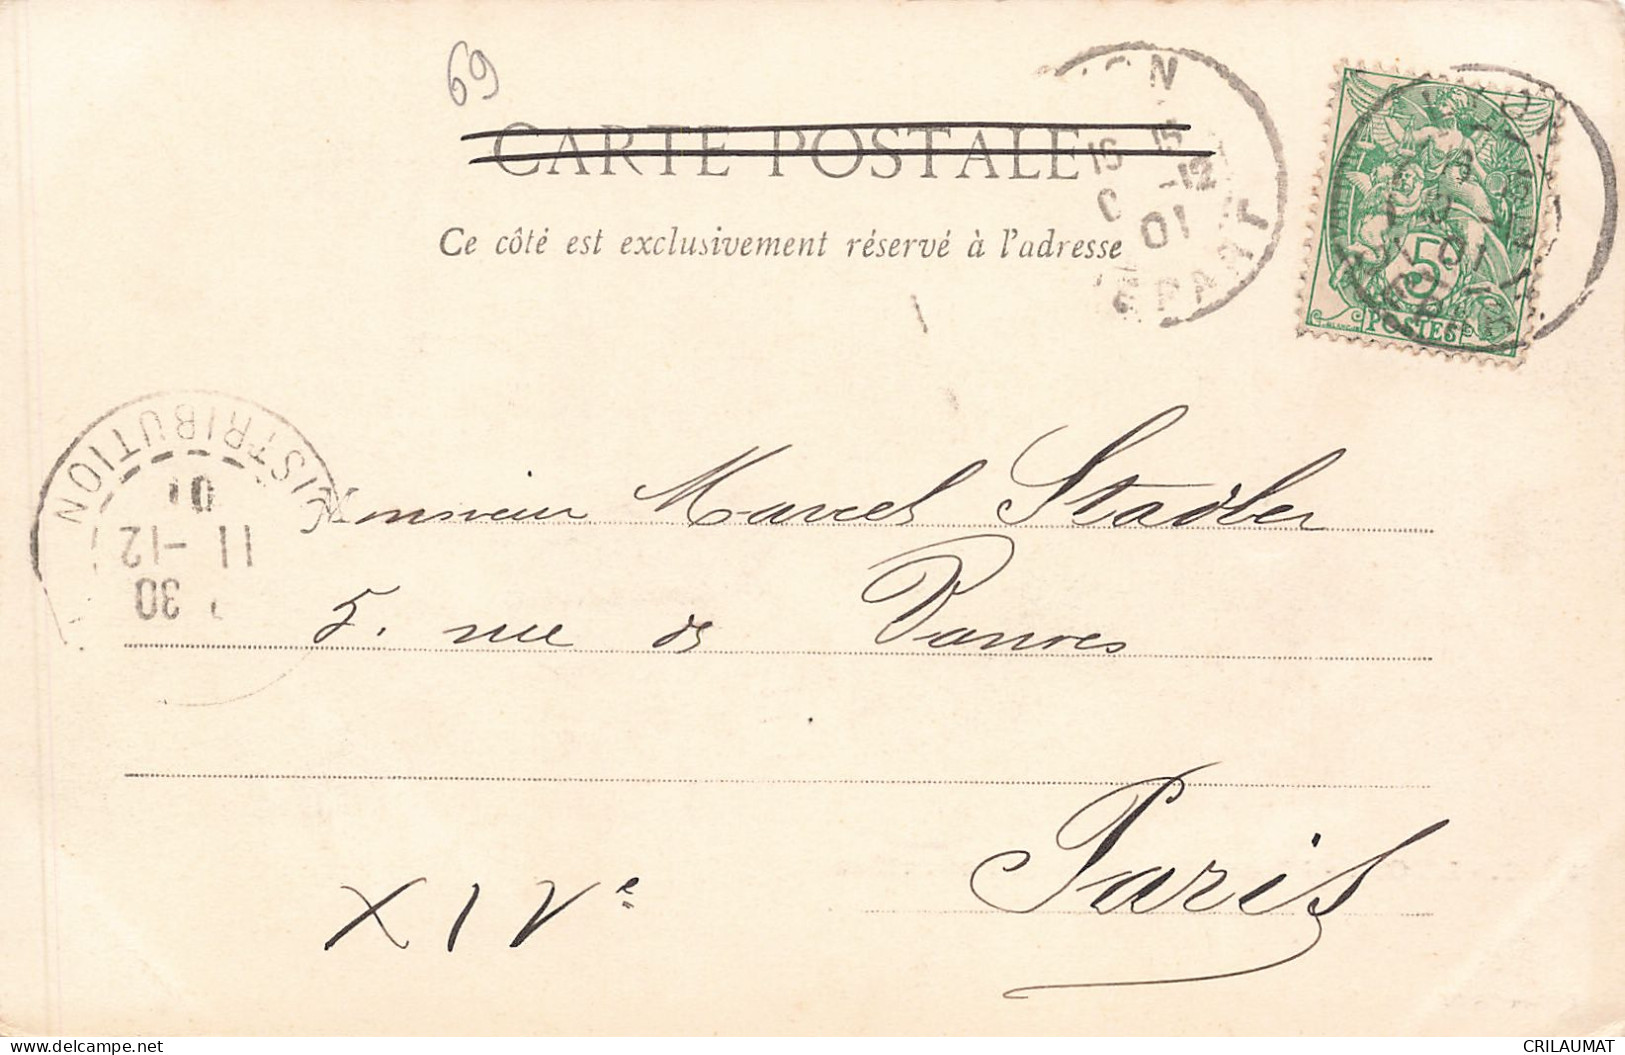 69
CARTE POSTALE
Ce côté est exclusivement réservé à l'adresse
15
-12
01
5
POSTES
DISTRIBUTION
01
11 -12
30
Monsieur Marcel Stadler
5. rue de Vanves
Paris
XIVe
CRILAUMAT